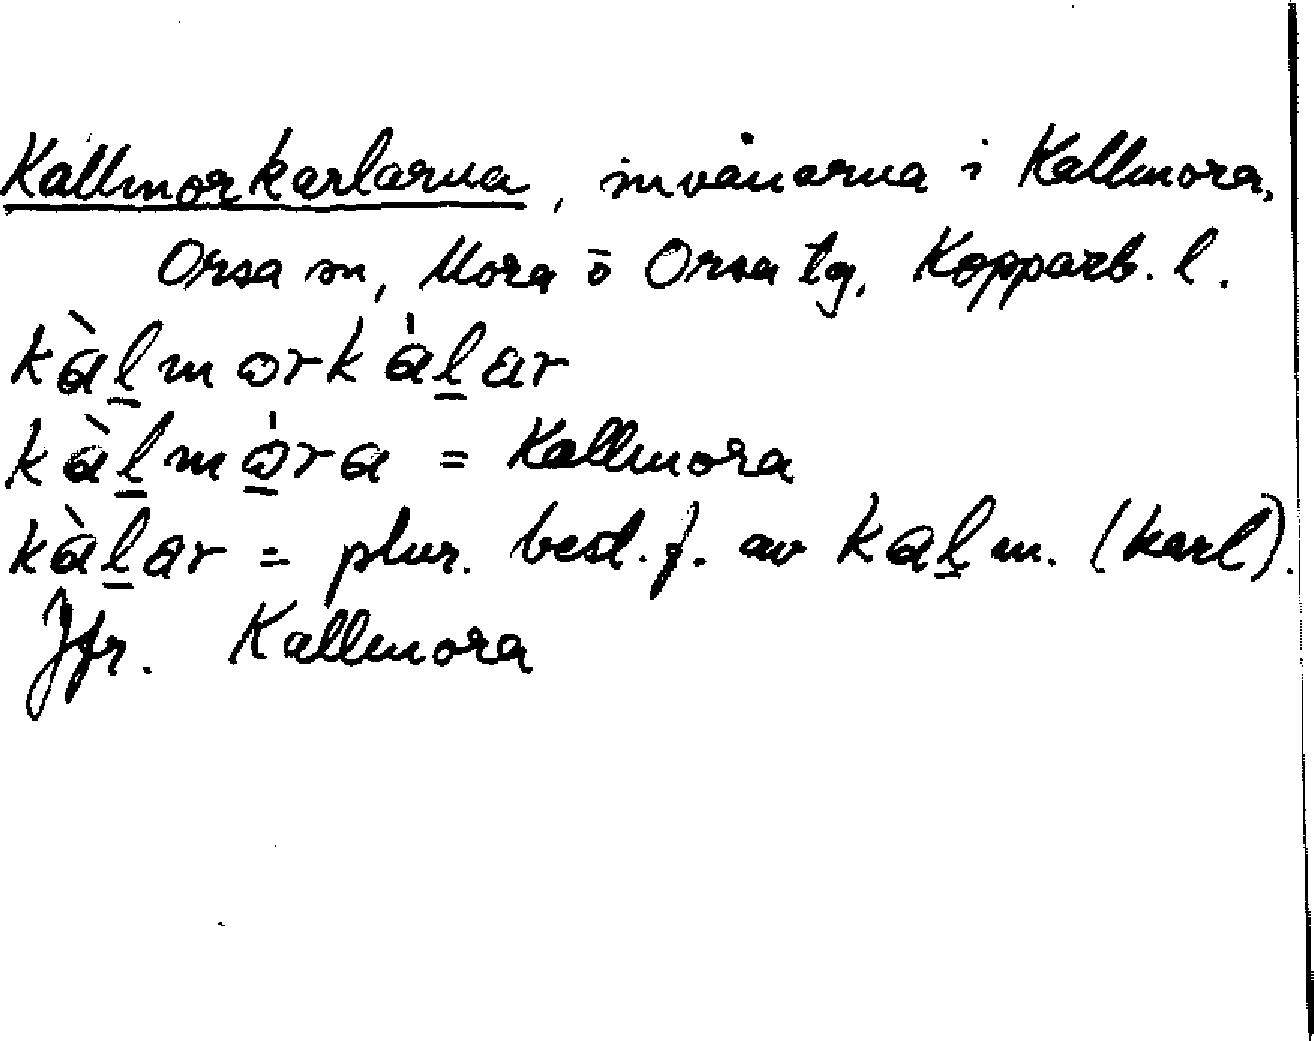 Kallmorkarlarna, invånarna i Kallmora,
Orsa sn, Mora o Orsa tg, Kopparb. l.
kàl̲mɔrkàl̲ar
kàl̲mɔ̲̀ra = Kallmora
kàl̲ar = plur. best. f. av kal̲ m. (karl).
Jfr. Kallmora